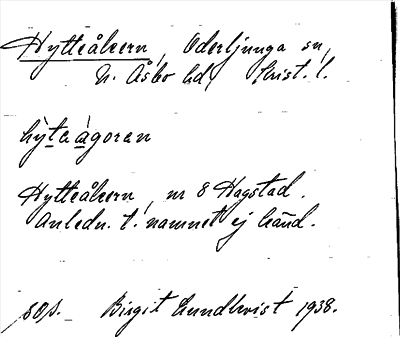 Hytteåkern, Oderljunga sn,
N. Åsbo hd, Krist. l.
hỳtaågoran
Hytteåkern, nr 8 Hagstad.
Anledn. t. namnet ej känd.
Birgit Lundkvist 1938.